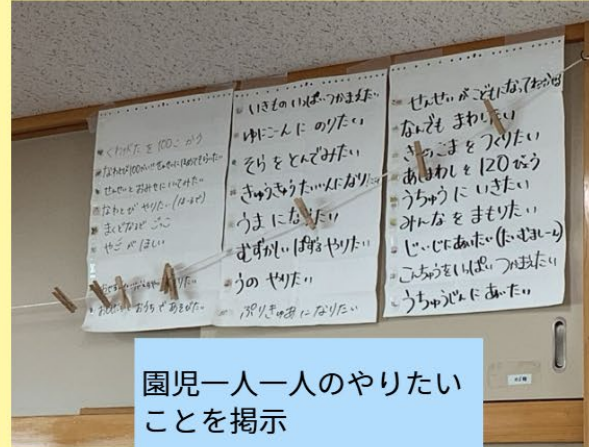 くわがたを100こかう
なわとび100かい
せんせいとおみせにいってみたい
なわとびやりたい
まくどなるどごっこ
やこがほしい
おうちであそびたい
いきものいっぱいつかまえたい
ゆにこーんにのりたい
そらをとんでみたい
きゅうきゅうたいいんになりたい
うまになりたい
むずかしいぱずるやりたい
うのやりたい
ぷりきゅあになりたい
せんせいがこどもになって
なんでもまわりたい
こまをつくりたい
あしまわしを120びょう
うちゅうにいきたい
みんなをまもりたい
じぃじにあいたい(たいむましーん)
こんちゅうをいっぱいつかまえたい
うちゅうじんにあいたい
園児一人一人のやりたい
ことを掲示